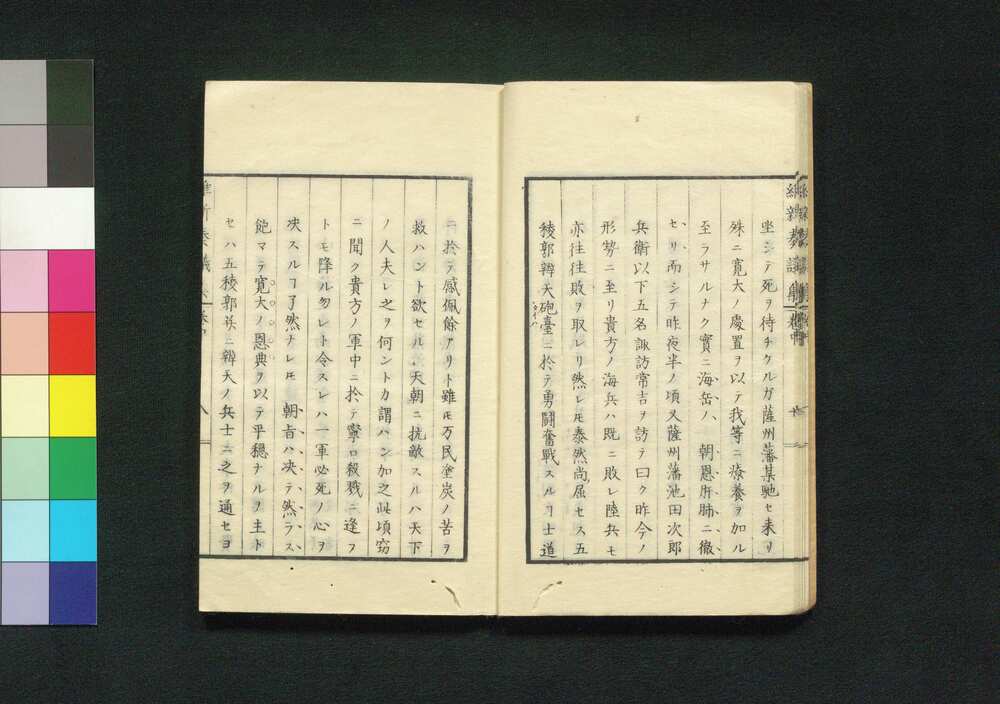 坐シテ死ヲ待チタルガ薩州藩某馳セ来リ
殊ニ寛大ノ處置ヲ以テ我等ニ療養ヲ加ル
至ラサルナク實ニ海岳ノ朝恩肝肺ニ徹
セリ而シテ昨夜半ノ頃又薩州藩池田次郎
兵衛以下五名諏訪常吉ヲ訪テ曰ク昨今ノ
形勢ニ至リ貴方ノ海兵ハ既ニ敗レ陸兵モ
亦往往敗ヲ取レリ然レ𪜈泰然尚屈セス五
稜郭辨天砲臺ニ於テ勇闘奮戦スルヿ士道
ニ於テ感佩餘アリト雖𪜈万民塗炭ノ苦ヲ
救ハント欲セル天朝ニ抗敵スルハ天下
ノ人夫レ之ヲ何ントカ謂ハン加之此頃窃
ニ聞ク貴方ノ軍中ニ於テ寧ロ殺戮ニ逢フ
トモ降ル勿レト令スレハ一軍必死ノ心ヲ
决スルヿ了然ナレ𪜈朝旨ハ决テ然ラス
飽マテ寛大ノ恩典ヲ以テ平穏ナルヲ主ト
セハ五稜郭並ニ辨天ノ兵士ニ之ヲ通セヨ